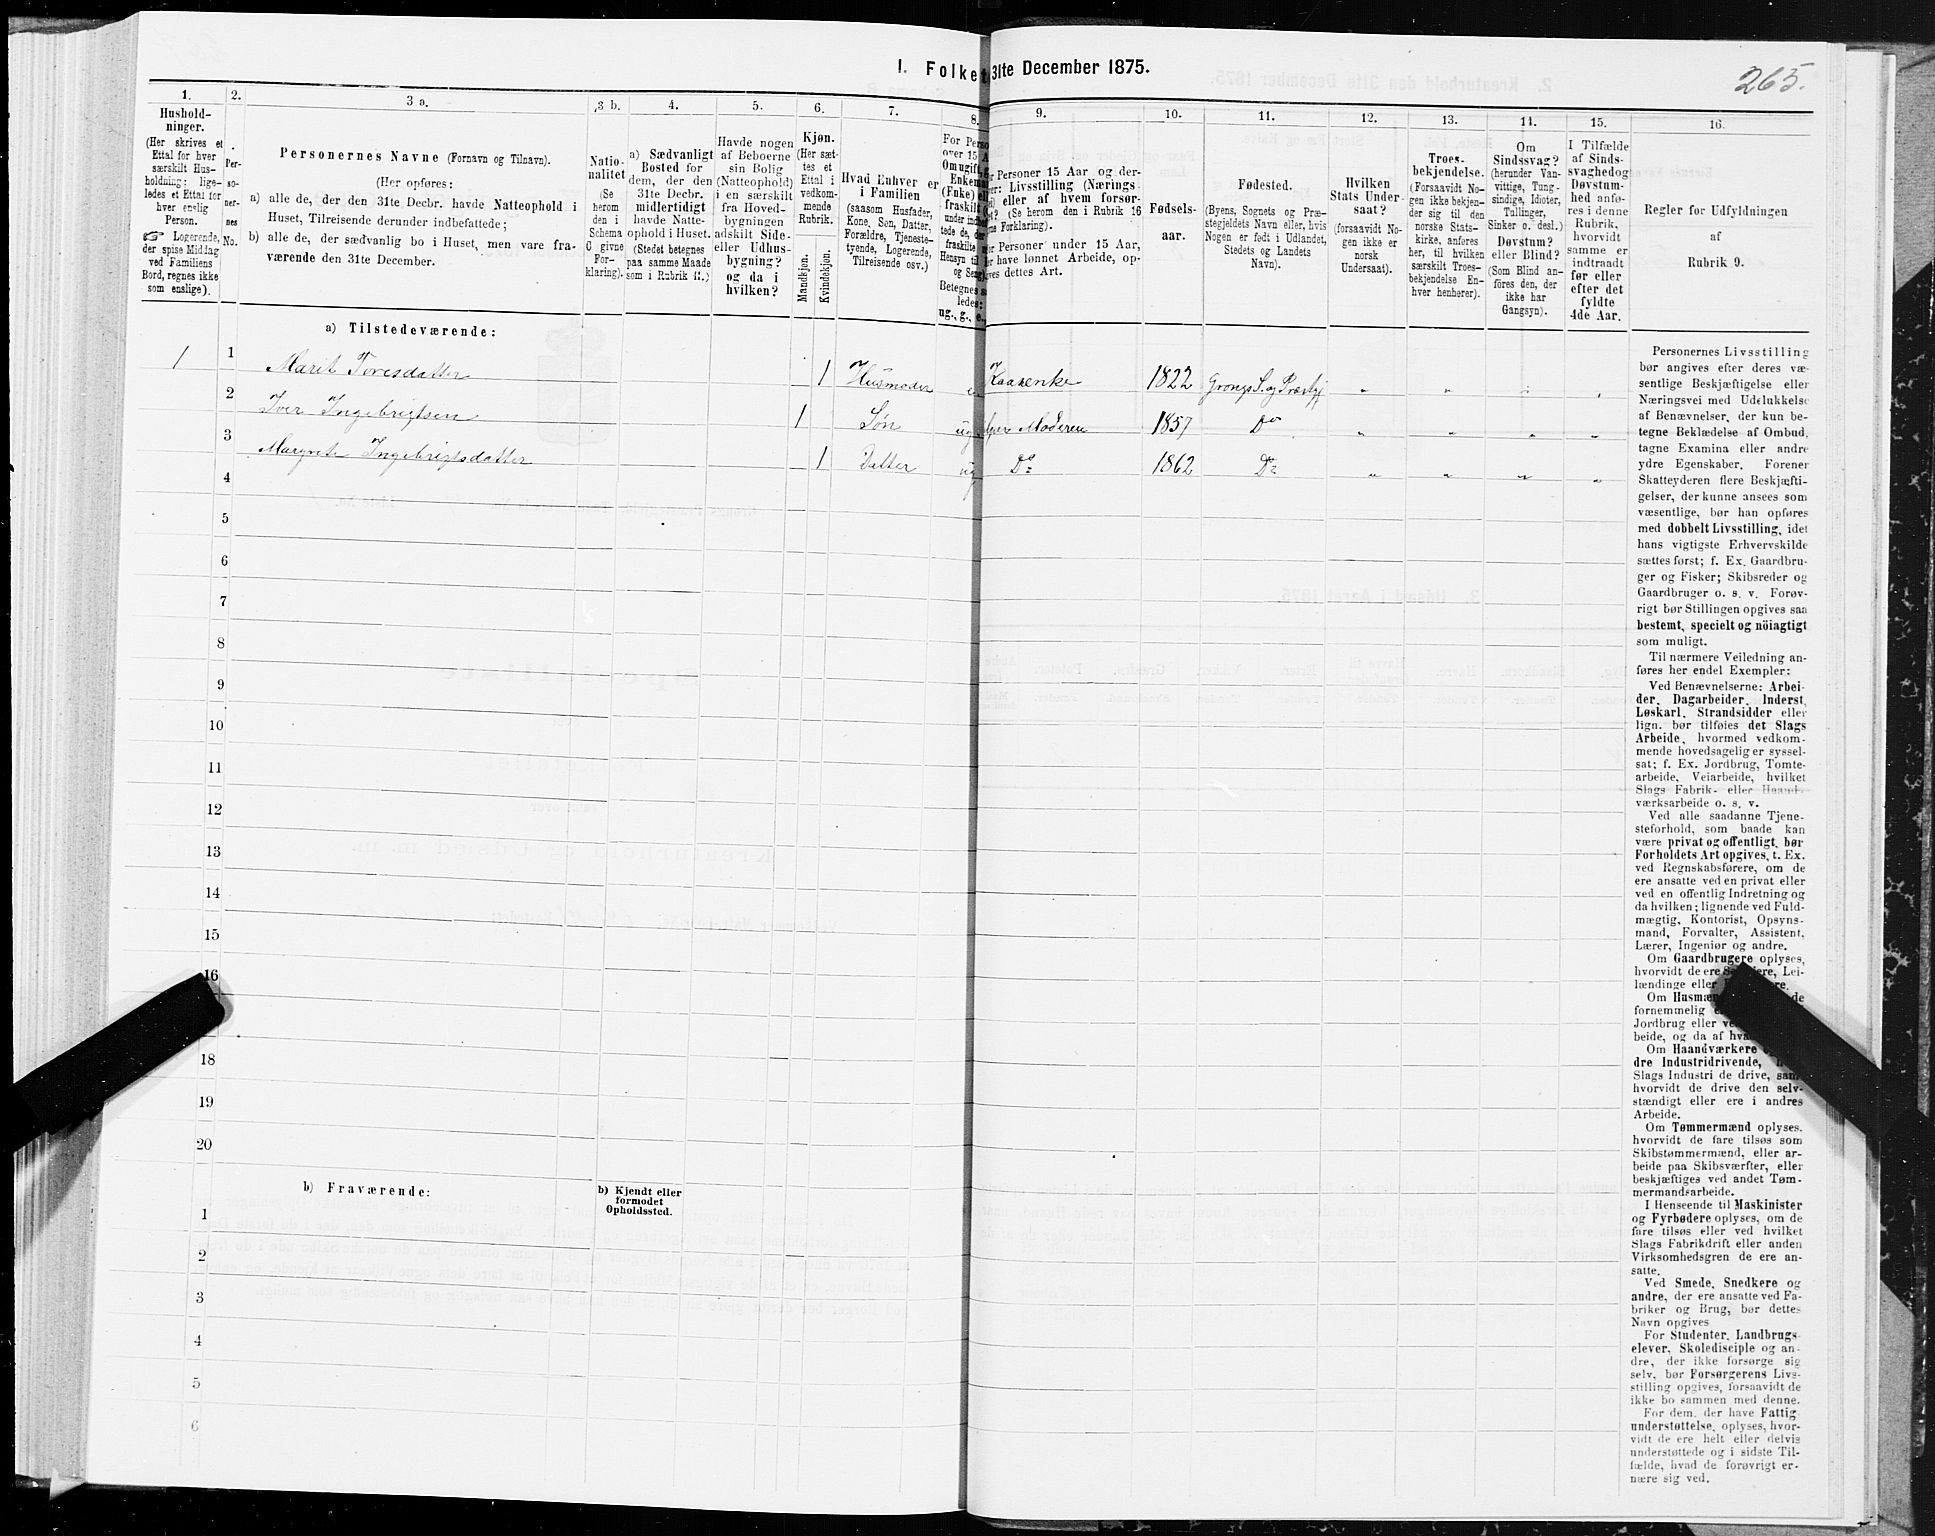 1. Folket 31te December 1875.
265.
1.
2.
3 a.
3 b.
4.
5.
6.
7.
8.
9.
10.
11.
12.
13.
14.
15.
16.
Hushold-
ninger.
(Her skrives et
Ettal for hver
særskilt Hus-
holdning; lige-
ledes et Ettal for
hver enslig
Person.
Logerende,
der spise Middag
ved Familiens
Bord, regnes ikke
som enslige).
Per-
so-
ner-
nes
No.
Personernes Navne (Fornavn og Tilnavn).
(Her opføres:
a) alle de, der den 31te Decbr. havde Natteophold i
Huset, Tilreisende derunder indbefattede;
b) alle de, der sædvanlig bo i Huset, men vare fra-
værende den 31te December.
Natio-
nalitet
(Se
herom
den i
Schema
C givne
For-
klaring).
a) Sædvanligt
Bosted for
dem, der den
31te Decbr.
midlertidigt
havde Natte-
ophold i Huset.
(Stedet betegnes
paa samme Maade
som i Rubrik 11.)
Havde nogen
af Beboerne
sin Bolig
(Natteophold)
i en særskilt
fra Hoved-
bygningen
adskilt Side-
eller Udhus-
bygning?
og da i
hvilken?
Kjøn.
(Her sæt-
tes et
Ettal i
vedkom-
mende
Rubrik.
Mandkjøn.
Kvindekjøn.
Hvad Enhver er
i Familien
(saasom Husfader,
Kone, Søn, Datter,
Forældre, Tjeneste-
tyende, Logerende,
Tilreisende osv.)
For Perso
over 15 A
Om ugift,
Enkema
(Enke) el
fraskilt
under ind
tede de,
fraskilte
Hensyn til
og Seng
Betegnes s
ledes:
ug., g., e.,
Personer 15 Aar og der-
Livsstilling (Nærings-
eller af hvem forsør-
(Se herom den i Rubrik 16
Forklaring).
Personer under 15 Aar,
have lønnet Arbeide, op-
dettes Art.
Fødsels-
aar.
Fødested.
(Byens, Sognets og Præ-
stegjeldets Navn eller, hvis
Nogen er født i Udlandet,
Stedets og Landets
Navn).
Hvilken
Stats Under-
saat?
(forsaavidt No-
gen ikke er
norsk
Undersaat).
Troes-
bekjendelse.
(Forsaavidt No-
gen ikke bekjen-
der sig til den
norske Stats-
kirke, anføres
her, til hvilken
særskilt Troes-
bekjendelse En-
hver henhører).
Om
Sindssvag?
(herunder Van-
vittige, Tung-
sindige, Idioter,
Tullinger,
Sinker o. desl.)
Døvstum?
eller Blind?
(Som Blind an-
føres den, der
ikke har
Gangsyn).
I Tilfælde
af Sinds-
svaghed og
Døvstum-
hed anfø-
res i denne
Rubrik,
hvorvidt
samme er
indtraadt
før eller
efter det
fyldte
4de Aar.
Regler for Udfyldningen
af
Rubrik 9.
a) Tilstedeværende:
1 1 Marit Toresdatter 1 Husmoder e Kaarenke 1822 Grongs S. og Præstgj " " " "
2 Iver Ingebrigtsen 1 Søn ug Moderen 1857 Do " " " "
3 Margrete Ingebrigtsdatter 1 Datter ug Do 1862 Do " " " "
4
5
6
7
8
9
10
11
12
13
14
15
16
18
19
20
b) Fraværende:
b) Kjendt eller
formodet
Opholdssted.
1
2
3
4
5
6
Personernes Livsstilling
bør angives efter deres væ-
sentlige Beskjæftigelse eller
Næringsvei med Udelukkelse
af Benævnelser, der kun be-
tegne Beklædelse af Ombud,
tagne Examina eller andre
ydre Egenskaber. Forener
Skatteyderen flere Beskjæfti-
gelser, der kunne ansees som
væsentlige, bør han opføres
med dobbelt Livsstilling, idet
hans vigtigste Erhvervskilde
sættes først; f. Ex. Gaardbru-
ger og Fisker; Skibsreder og
Gaardbruger o. s. v. Forøv-
rigt bør Stillingen opgives saa
bestemt, specielt og nöiagtigt
som muligt.
Til nærmere Veiledning an-
føres her endel Exempler:
Ved Benævnelserne: Arbei-
der, Dagarbeider, Inderst,
Løskarl, Strandsidder eller
lign. bør tilføies det Slags
Arbeide, hvormed vedkom-
mende hovedsagelig er syssel-
sat; f. Ex. Jordbrug, Tomte-
arbeide, Veiarbeide, hvilket
Slags Fabrik- eller Haand-
værksarbeide o. s. v.
Ved alle saadanne Tjene-
steforhold, som baade kan
være privat og offentligt, bør
Forholdets Art opgives, t. Ex.
ved Regnskabsførere, om de
ere ansatte ved en privat eller
ved en offentlig Indretning og
da hvilken; lignende ved Fuld-
mægtig, Kontorist, Opsyns-
mand, Forvalter, Assistent,
Lærer, Ingeniør og andre.
Om Gaardbrugere oplyses,
hvorvidt de ere Se ere, Lei-
lændinge eller re.
Om Husmæn de
fornemmelig
Jordbrug eller
beide, og da af
Om Haandværkere
dre Industridrivende,
Slags Industri de drive, samt
hvorvidt de drive den selv-
stændigt eller ere i andres
Arbeide.
Om Tømmermænd oplyses,
hvorvidt de fare tilsøs som
Skibstømmermænd, eller ar-
beide paa Skibsværfter, eller
beskjæftiges ved andet Tøm-
mermandsarbeide.
I Henseende til Maskinister
og Fyrbødere oplyses, om de
fare tilsøs eller ved hvilket
Slags Fabrikdrift eller anden
Virksomhedsgren de ere an-
satte.
Ved Smede, Snedkere og
andre, der ere ansatte ved Fa-
briker og Brug, bør dettes
Navn opgives
For Studenter, Landbrugs-
elever, Skoledisciple og an-
dre, der ikke forsørge sig
selv, bør Forsørgerens Livs-
stilling opgives, forsaavidt de
ikke bo sammen med denne.
For dem, der have Fattig-
understøttelse, oplyses, hvor-
vidt de ere helt eller delvis
understøttede og i sidste Til-
fælde, hvad de forøvrigt er-
nære sig ved.